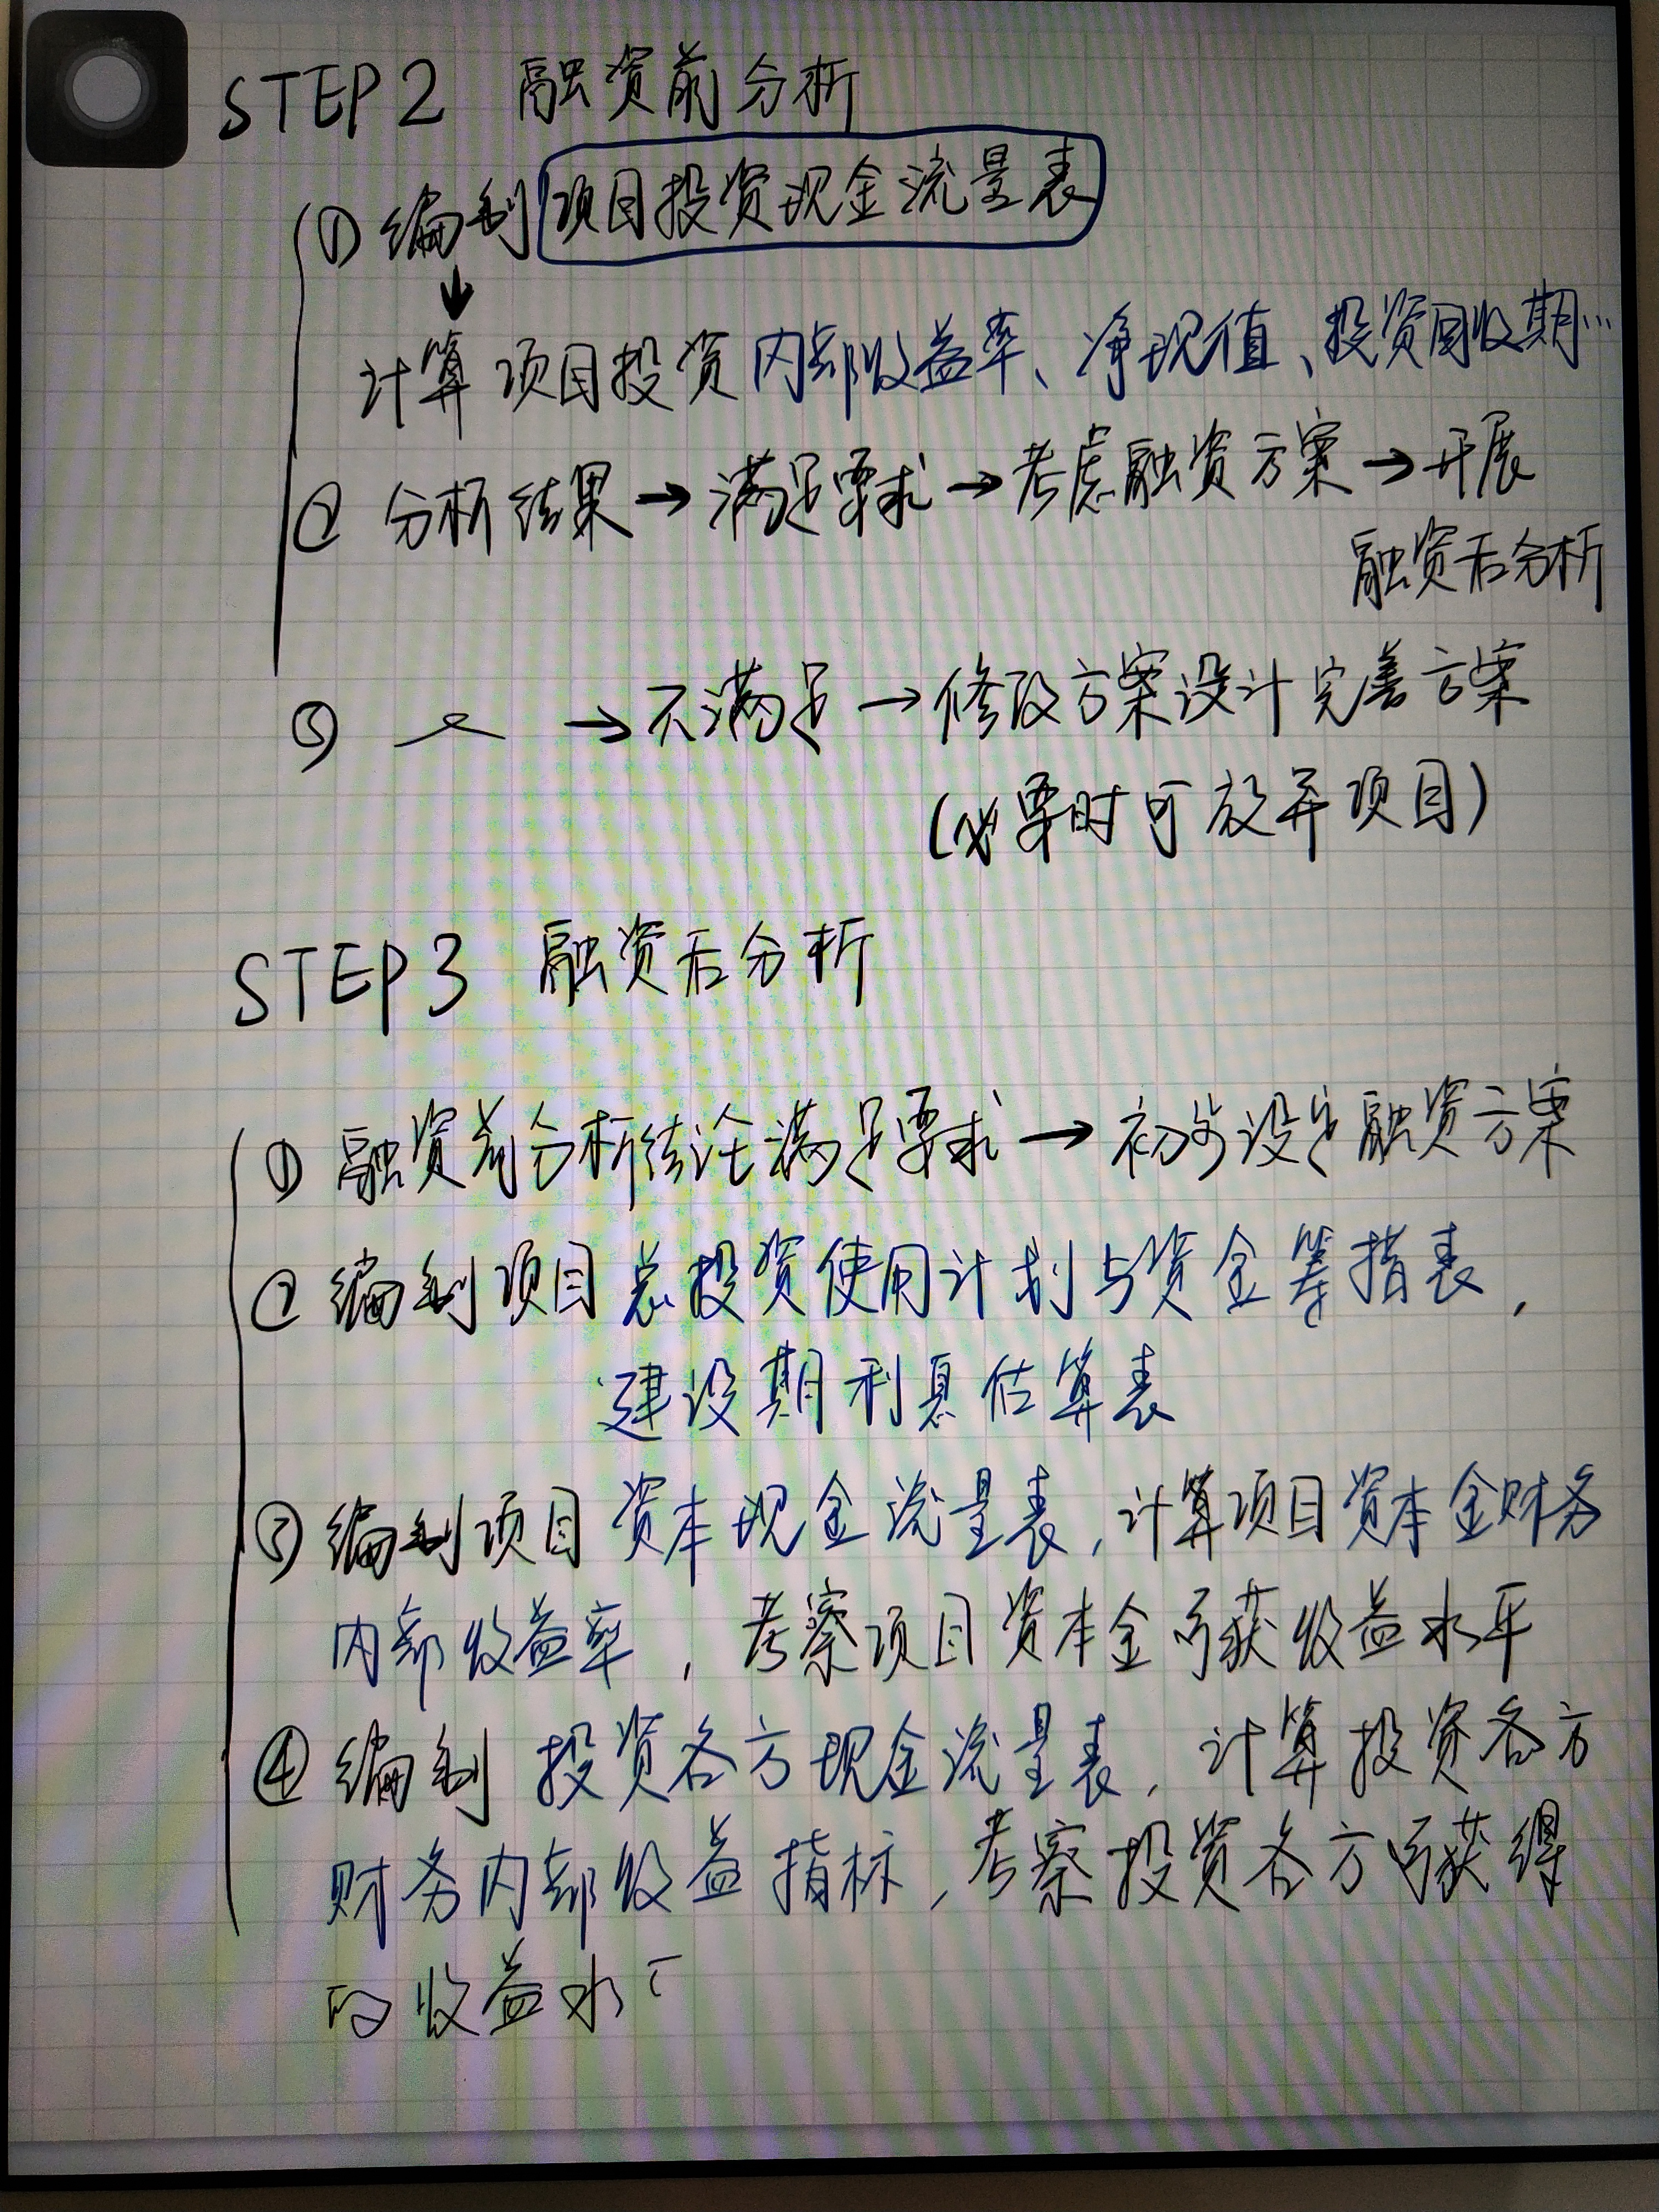 STEP2 融资前分析
① 编制项目投资现金流量表
↓
计算项目投资内部收益率、净现值、投资回收期…
② 分析结果→满足要求→考虑融资方案→开展
融资后分析
③ →不满足→修改方案设计完善方案
(必要时可放弃项目)
STEP3 融资后分析
① 融资前分析结论满足要求→初步设定融资方案
② 编制项目总投资使用计划与资金筹措表,
建设期利息估算表
③ 编制项目资本现金流量表,计算项目资本金财务
内部收益率,考察项目资本金可获收益水平
④ 编制 投资各方现金流量表,计算投资各方
财务内部收益指标,考察投资各方可获得
的收益水平